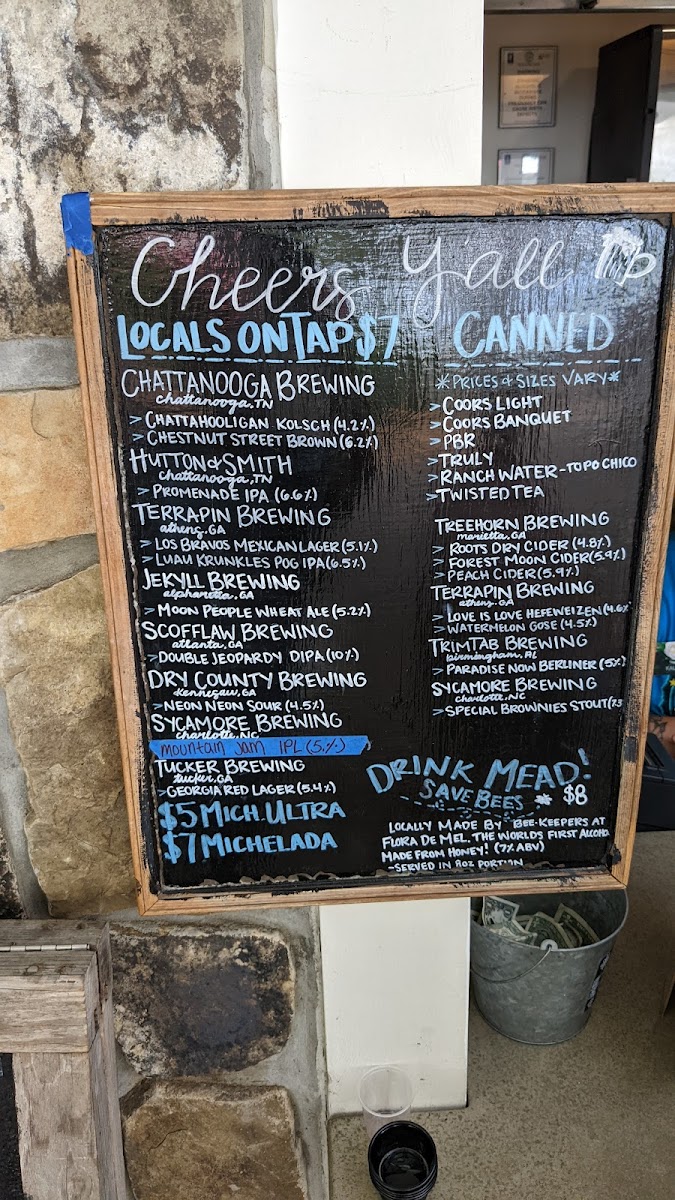 Cheers Y'all
LOCALS ON TAP $7
CHATTANOOGA BREWING
chattanooga, TN
> CHATTAHOOLIGAN KOLSCH (4.2%)
> CHESTNUT STREET BROWN (6.2%)
HUTTON & SMITH
chattanooga, TN
> PROMENADE IPA (6.6%)
TERRAPIN BREWING
athens, GA
> LOS BRAVOS MEXICAN LAGER (5.1%)
> LUAU KRUNKLES POG IPA (6.5%)
JEKYLL BREWING
alpharetta, GA
> MOON PEOPLE WHEAT ALE (5.2%)
SCOFFLAW BREWING
atlanta, GA
> DOUBLE JEOPARDY DIPA (10%)
DRY COUNTY BREWING
Kennesaw, GA
> NEON NEON SOUR (4.5%)
SYCAMORE BREWING
charlotte, NC
mountain Jam IPL (5.%)
TUCKER BREWING
tucker, GA
> GEORGIA RED LAGER (5.4%)
$5 MICH. ULTRA
$7 MICHELADA
CANNED
*PRICES & SIZES VARY*
> COORS LIGHT
> COORS BANQUET
> PBR
> TRULY
> RANCH WATER - TOPO CHICO
> TWISTED TEA
TREEHORN BREWING
marietta, GA
> ROOTS DRY CIDER (4.8%)
> FOREST MOON CIDER (5.9%)
> PEACH CIDER (5.9%)
TERRAPIN BREWING
athens, GA
> LOVE IS LOVE HEFEWEIZEN (4.6%
> WATERMELON GOSE (4.5%)
TRIMTAB BREWING
birmingham, AL
> PARADISE NOW BERLINER (5%)
SYCAMORE BREWING
charlotte, NC
> SPECIAL BROWNIES STOUT
DRINK MEAD!
SAVE BEES * $8
LOCALLY MADE BY BEE-KEEPERS AT
FLORA DE MEL. THE WORLDS FIRST ALCOHO
MADE FROM HONEY! (7% ABV)
-SERVED IN 8OZ PORTION
WARNING